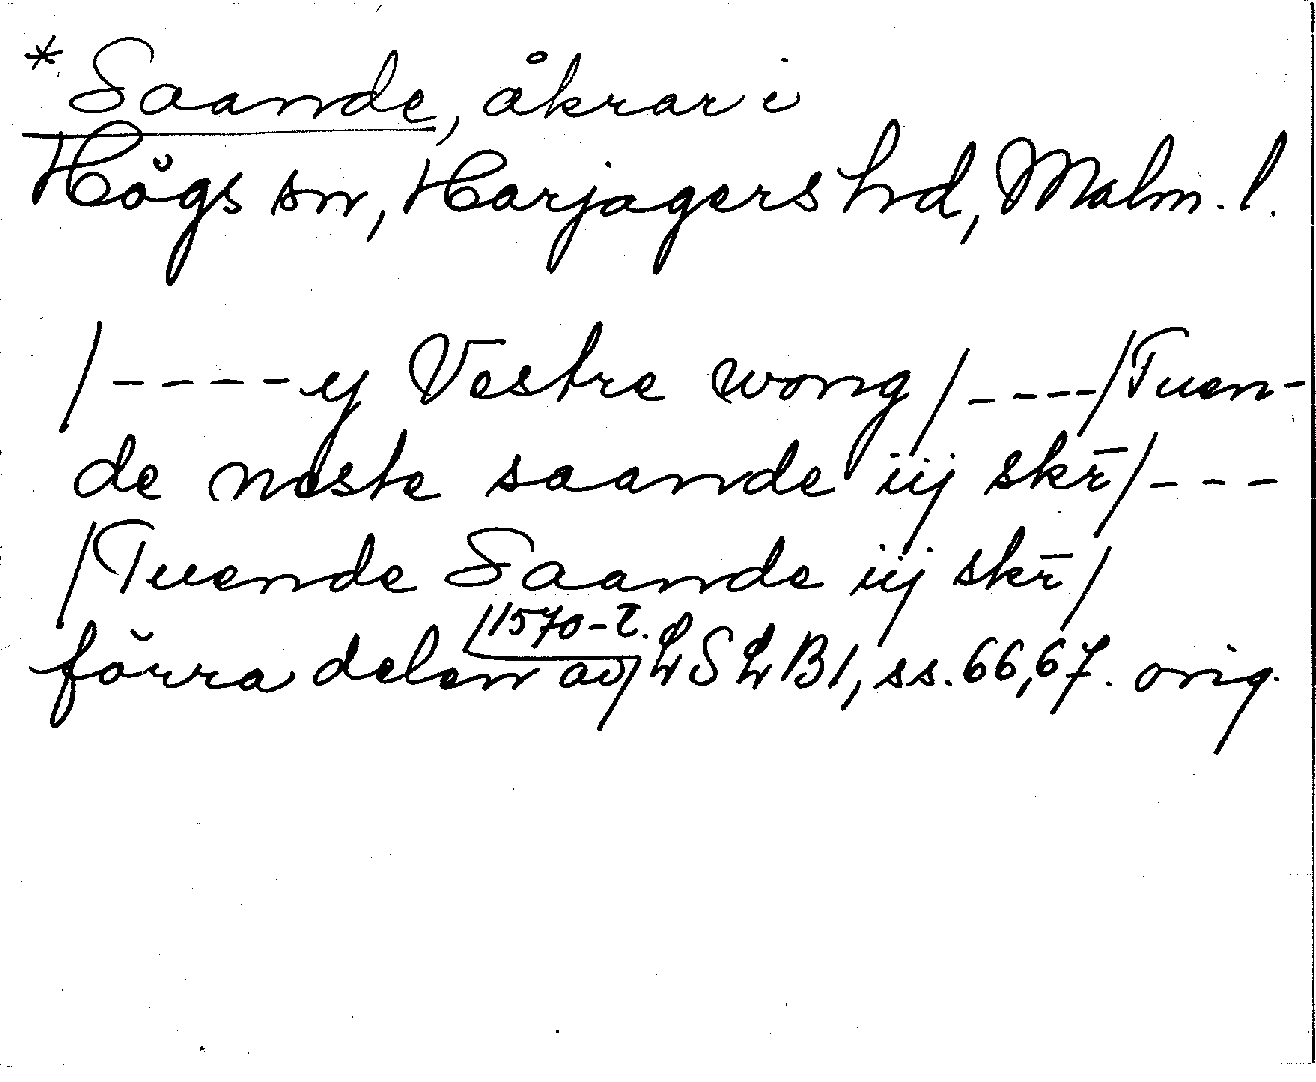 * Saande, åkrar i
Högs sn, Harjagers hd, Malm. l.
/ - - - - y Vestre wong / - - - - / Tuen-
de neste saande iij skr̄ / - - -
/ Tuende Saande iij skr̄ /
/1570-t.
förra delen av/ LSLB1, ss. 66, 67. orig.